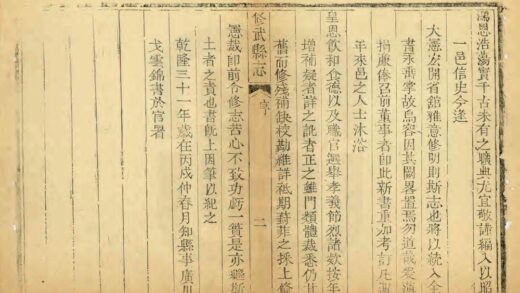 鴻恩浩蕩實千古未有之曠典尤宜敬謹編入以昭
一邑信史今逢
大憲宏開省舘雅意修明則斯志也將以統入全
書永垂掌故烏容因其闕畧置焉勿道哉爰
捐廉俸召前董事者卽此新書重加考訂凡
年來邑之人士沐浴
皇恩飲和食德以及職官選舉孝義節烈諸欵按年
增補疑者詳之訛者正之雖門類體裁悉仍
舊而修殘補缺校勘維詳祗期葑菲之採上
修武縣志
序
二
憲裁卽前令修志苦心不致功虧一簣是亦繼斯
土者之責也書旣上因筆以紀之
乾隆三十一年歲在丙戌仲春月知縣事廣川
戈雲錦書於官署